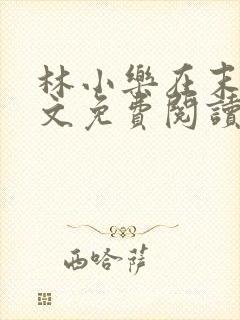 林小樂在末
文免費閱讀
西哈萨